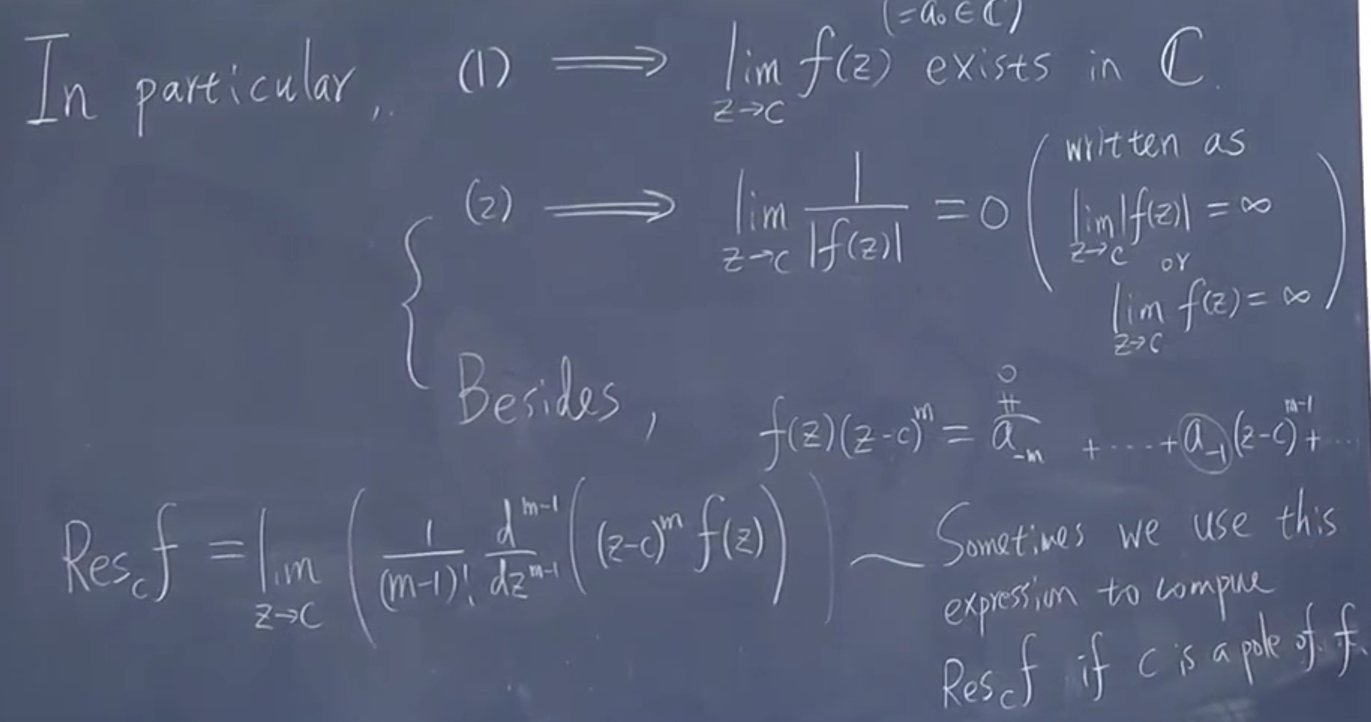 (=a₀ ∈ ℂ)
In particular, (1) ⟹ lim_{z→c} f(z) exists in ℂ.
(2) ⟹ lim_{z→c} 1/|f(z)| = 0 ( written as
lim_{z→c} |f(z)| = ∞
or
lim_{z→c} f(z) = ∞ )
Besides, f(z)(z-c)^m = a_{-m} + ⋯ + a_{-1}(z-c)^{m-1} + ⋯
0 ≠
Res_c f = lim_{z→c} ( 1/(m-1)! d^{m-1}/dz^{m-1} ( (z-c)^m f(z) ) ) ~ Sometimes we use this
expression to compute
Res_c f if c is a pole of f.